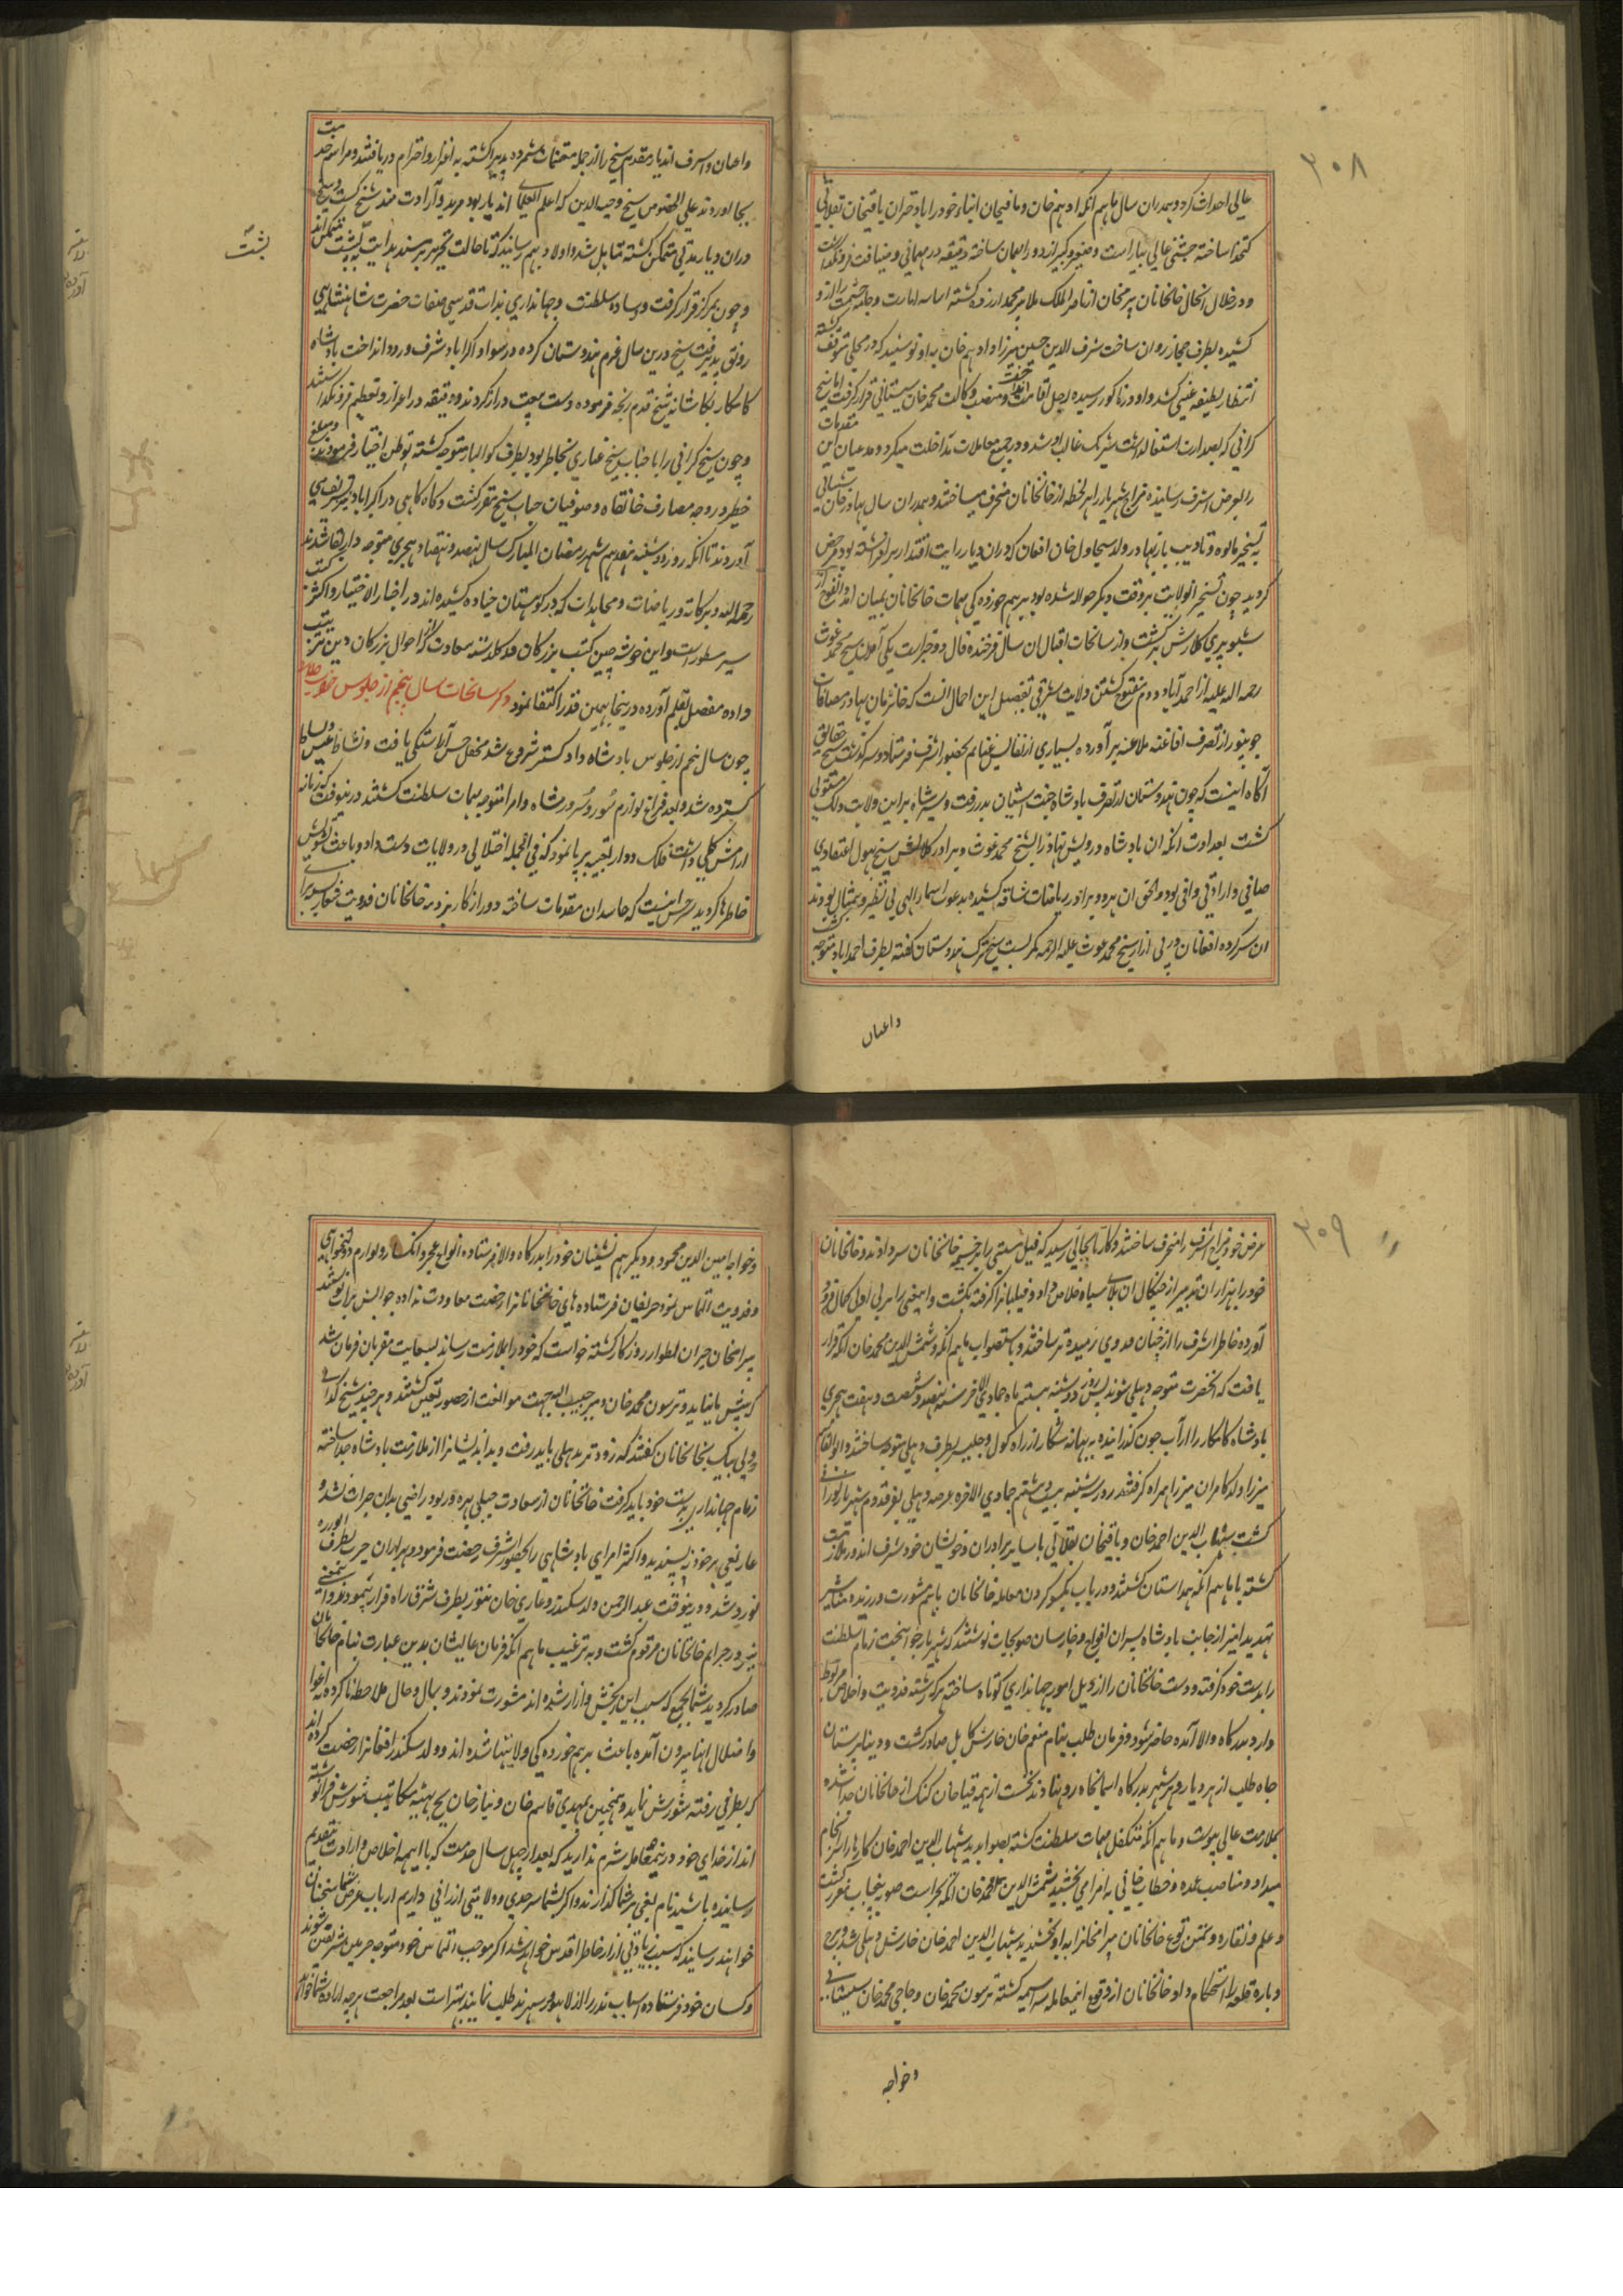 ۳۰۸
عالی احداث کرد و همدران سال ماهم انکه ادهم خان و باقیخان ابناء خود را با دختران باقیخان بقلانی
کتخدا ساخته جشنی عالی بیاراست و صغیر و کبیر از دور را مهمان ساخته دقیقه در مهمانی و ضیافت فرونکذاشت
و در خلال انحال خانخانان بیرمخان از ناصرالملک ملا پیرمحمد ازرده کشته اسباب امارت و جاه و حشمت را از و
کشیده بطرف حجاز روان ساخت شرف الدین حسین میرزا و ادهم خان به او نوشتند که در محلی توقف کشته
انتظار لطیفه غیبی کشد و او در ناکور رسیده رحل اقامت انداخت و منصب وکالت محمد خان سیستانی قرار کرفت اما شیخ
کدائی که بصدارت استغنا داشت شریک غالب او شد و در جمیع معاملات مداخلت میکرد و مدعیان این مقدمات
را بعرض اشرف رسانیده مزاج شهریار را هر لحظه از خانخانان منحرف میساختند و همدران سال بهادر خان شیبانی
به تسخیر مالوه و تادیب باز بهادر ولد سجاول خان افغان که دران دیار رایت اقتدار بر افراشته بود مرخص
کردید چون تسخیر انولایت بر وقت دیکر حواله شده بود بر هم خوردکی مهمات خانخانان بمیان امد و افواج از
سیوپری کارش برکشت و از سانحات اقبال ان سال فرخنده فال دو خبر است یکی آمدن شیخ محمد غوث
رحمه الله علیه از احمد آباد دوم مفتوح کشتن ولایت شرقی تفصیل این اجمال انست که خانزمان بهادر مضافات
جونپور از تصرف افاغنه ملاعنه بر آورده بسیاری از نفایس غنایم بحضور اشرف فرستاد و سرکذشت شیخ حقایق
آکاه اینست که چون هندوستان از تصرف بادشاه جنت اشیان بدر رفت و شیرشاه بر این ولایت و ملک مستولی
کشت بعداوت انکه ان بادشاه درویش نهاد را بشیخ محمد غوث و برادر کلانش شیخ بهول اعتقادی
صافی و ارادتی وافی بود و الحق ان هر دو برادر ریاضات شاقه کشیده بدعوت اسماء الهی بی نظیر و بیمثال بودند
ان سرکرده افغانان در پی ازار شیخ محمد غوث علیه الرحمه کمر بست شیخ ترک هندوستان کفته بطرف احمداباد متوجه کشت
واعیان
واعیان و اشرف اندیار مقدم شیخ را از جمله مغتنمات شمرده پذیرا کشته به اعزاز و احترام دریافتند و مراسم خدمت
بجا اوردند علی الخصوص شیخ وجیه الدین که اعلم العلمای اندیار بود مرید و ارادت مند شیخ کشت و شیخ
دران دیار مدتی متمکن کشته متاهل شد و اولاد بهم رسانید که تا حالت تحریر بر مسند هدایت پشت متمکن اند
پشت
و چون بمرکز قرار کرفت وساده سلطنت و جهانداری بذات قدسی صفات حضرت شاهنشاهی
رونق پذیرفت شیخ درین سال عزم هندوستان کرده در سواد اکراباد شرف ورود انداخت بادشاه
کامکار بکاشانه شیخ قدم رنجه فرموده دست بیعت دراز کردند و دقیقه در اعزاز و تعظیم فرونکذاشتند
و چون شیخ کدائی را با جناب شیخ غباری بخاطر بود بطرف کوالیار متوجه کشته توطن اختیار فرمودند و مبلغی
خطیر در وجه مصارف خانقاه و صوفیان جناب شیخ مقرر کشت و کاه کاهی در اکراباد تشریف می
آوردند تا انکه روز دوشنبه هفدهم شهر رمضان المبارک سال نهصد و هفتاد هجری متوجه دار بقا شدند
رحمه الله و برکاته و ریاضات و مجاهدات که در کوهستان چناده کشیده اند در اخبار الاخیار و اکثر کتب
سیر مسطور است و این خوشه چین کتب بزرکان که کلدسته سعادت که از احوال بزرکان دین ترتیب
داده مفصل بقلم آورده درینجا بهمین قدر اکتفا نمود ذکر سانحات سال پنجم از جلوس خلود
چون سال پنجم از جلوس بادشاه داد کستر شروع شد محفل جشن آراستکی یافت و نشاط عیش و انبساط
کسترده شد و بعد فراغ لوازم سور و سرور مشاه وامرا متوجه مهمات سلطنت کشتند درینوقت که زمانه
ارامش کلی داشت فلک دوار تعبیه بر پا نمود که فی الجمله اختلالی در ولایات دست داد و باعث تشویش
خاطرها کردید شرحش اینست که حاسدان مقدمات ساخته دور از کار نزد به خانخانان فدویت شعار
۳۰۹
عرض خود مزاج اشرف را منحرف ساختند و کار تا بجائی رسید که فیل مستی را بر خیمه خانخانان سر دادند و خانخانان
خود را بهزاران تدبیر از چنکال ان بلای سیاه خلاص داد و فیلبانرا کرفته بکشت و این معنی را بر بی ادبی کمال فرود
آورده خاطر اشرف را از چنان فدوی رمیده تر ساختند و باستصواب ماهم انکه و شمس الدین محمد خان اتکه قرار
یافت که انحضرت متوجه دهلی شوند پس روز دوشنبه بیستم ماه جمادی الاخر سنه نهصد و شصت و هفت هجری
بادشاه کامکار را از آب جون کذرانیده به بهانه شکار از راه کول و جلیسر بطرف دهلی متوجه ساختند و ابوالقاسم
میرزا ولد کامران میرزا همراه کرفتند روز سه شنبه بیست و هشتم جمادی الاخره عرصه دهلی بفر قدوم شهریار نورانی
کشت شهاب الدین احمد خان و باقیخان بقلانی با سایر برادران و خویشان خود شرف اندوز ملازمت
کشته با ماهم انکه همداستان کشتند و در باب یکسو کردن معامله خانخانان باهم مشورت ورزیده مناشیر
تهدید امیز از جانب بادشاه بسران افواج و پارسان صوبجات نوشتند که شهریار جوانبخت زمام سلطنت
را بدست خود کرفته و دست خانخانان را از ذیل امور جهانداری کوتاه ساخته هر که رشته فدویت و اخلاص مربوط
دارد بدرکاه والا آمده حاضر شود و فرمان طلب بنام منعم خان حارس کابل صادر کشت و دنیا پرستان
جاه طلب از هر دیار و هر شهر بدرکاه اسمانجاه رو نهادند نخست از همه قیاخان کنک از خانخانان جدا شده
بملازمت عالی پیوست و ماهم انکه متکفل مهمات سلطنت کشته بصوابدید شهاب الدین احمد خان کارها را سرانجام
میداد و مناصب عمده و خطاب خانی به امرا می بخشید شمس الدین محمد خان اتکه بحراست صوبه پنجاب مقرر کشت
و علم و نقاره و تمن توغ خانخانان بیرامخانرا به او بخشیدند شهاب الدین احمد خان حارس دهلی شد و برج
و باره قلعه را استحکام داد و خانخانان از وقوع اینمعامله سراسیمه کشته ترسون محمد خان و حاجی محمد خان سیستانی
وخواجه
وخواجه امین الدین محمود و دیکر هم نشینان خود را بدرکاه والا فرستاده انواع عجز و انکسار و لوازم دولتخواهی
و فدویت التماس نمود حریفان فرستاده های خانخانانرا رخصت معاودت نداده جوابش بران نوشتند
بیرامخان حیران اطوار روزکار کشته خواست که خود را بملازمت رساند بسعایت مقربان فرمان شد
که پیش ما نیاید و ترسون محمد خان و میر حبیب الله بجهت موانعت از حضور تعین کشتند و هر چند شیخ کدائی
و ولی بیک بخانخانان کفتند که زودتر بدهلی باید رفت و بد اندیشانرا از ملازمت بادشاه جدا ساخته
زمام جهانداری بدست خود باید کرفت خانخانان از سعادت جبلی بهره ور بود راضی بدان جرات نشد و
عار بغی بر خود نه پسندید و اکثر امرای بادشاهی را بحضور اشرف رخصت فرمود و هم
نورد شد و درینوقت عبدالرحمن ولد سکندر و غازی خان تنور بطرف شرق راه فرار پیمودند و این معنی
نیز در جرایم خانخانان مرقوم کشت و به ترغیب ماهم انکه فرمان عالیشان بدین عبارت بنام خانخانان
صادر کردید شما بجمیع که سبب این رنجش و ازار شده اند مشورت نمودند و بال و حال ملاحظه ناکرده به اغوا
و اضلال انها بیرون آمده باعث برهم خوردکی ولایتها شده اند و ولد سکندر افغانرا رخصت کرده اند
که بطرفی رفته شورش نماید و همچنین بمهدی قاسم خان و نیاز خان بیح مکاتیب شورش افزا نوشته
اند از خدای خود درینمعامله شرم ندارید که بعد از چهل سال خدمت که با اینهمه اخلاص و ارادت بتقدیم
رسانیده باشید نام بغی بر شما کذارند و اکر بشما سرحدی و ولایتی ارزانی داریم ارباب غرض شما سخنان
خواهند رسانید که سبب زیادتی ازار خاطر اقدس خواهد شد اکر موجب التماس خود متوجه حرمین شریفین شوند
و کسان خود فرستاده اسباب نذر را از لاهور و سهرند طلب نمایند بهتر است بعد مراجعت هر چه اراده شما خواهد